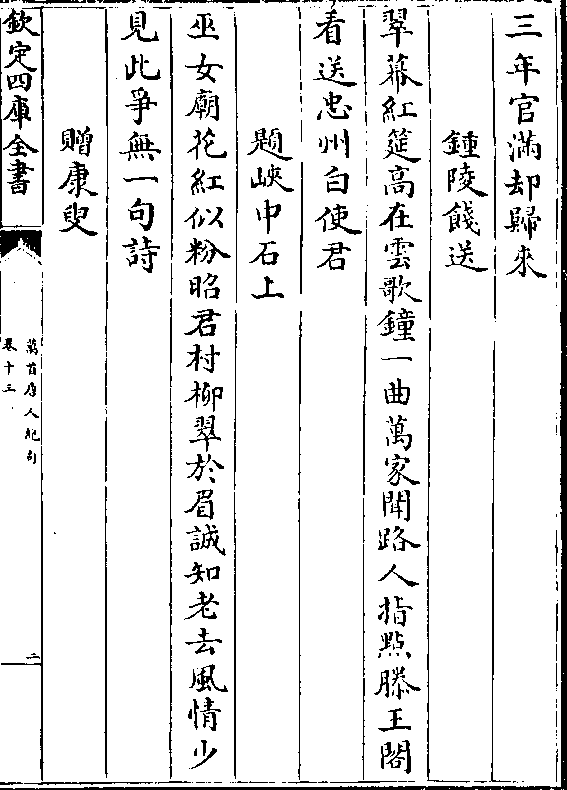 三年官滿却歸來
鍾陵餞送
翠幕紅筵高在雲歌鐘一曲萬家聞路人指點滕王閣
看送忠州白使君
題峽中石上
巫女廟花紅似粉昭君村柳翠於眉誠知老去風情少
見此爭無一句詩
贈康叟
欽定四庫全書
萬首唐人絶句
卷十三
二